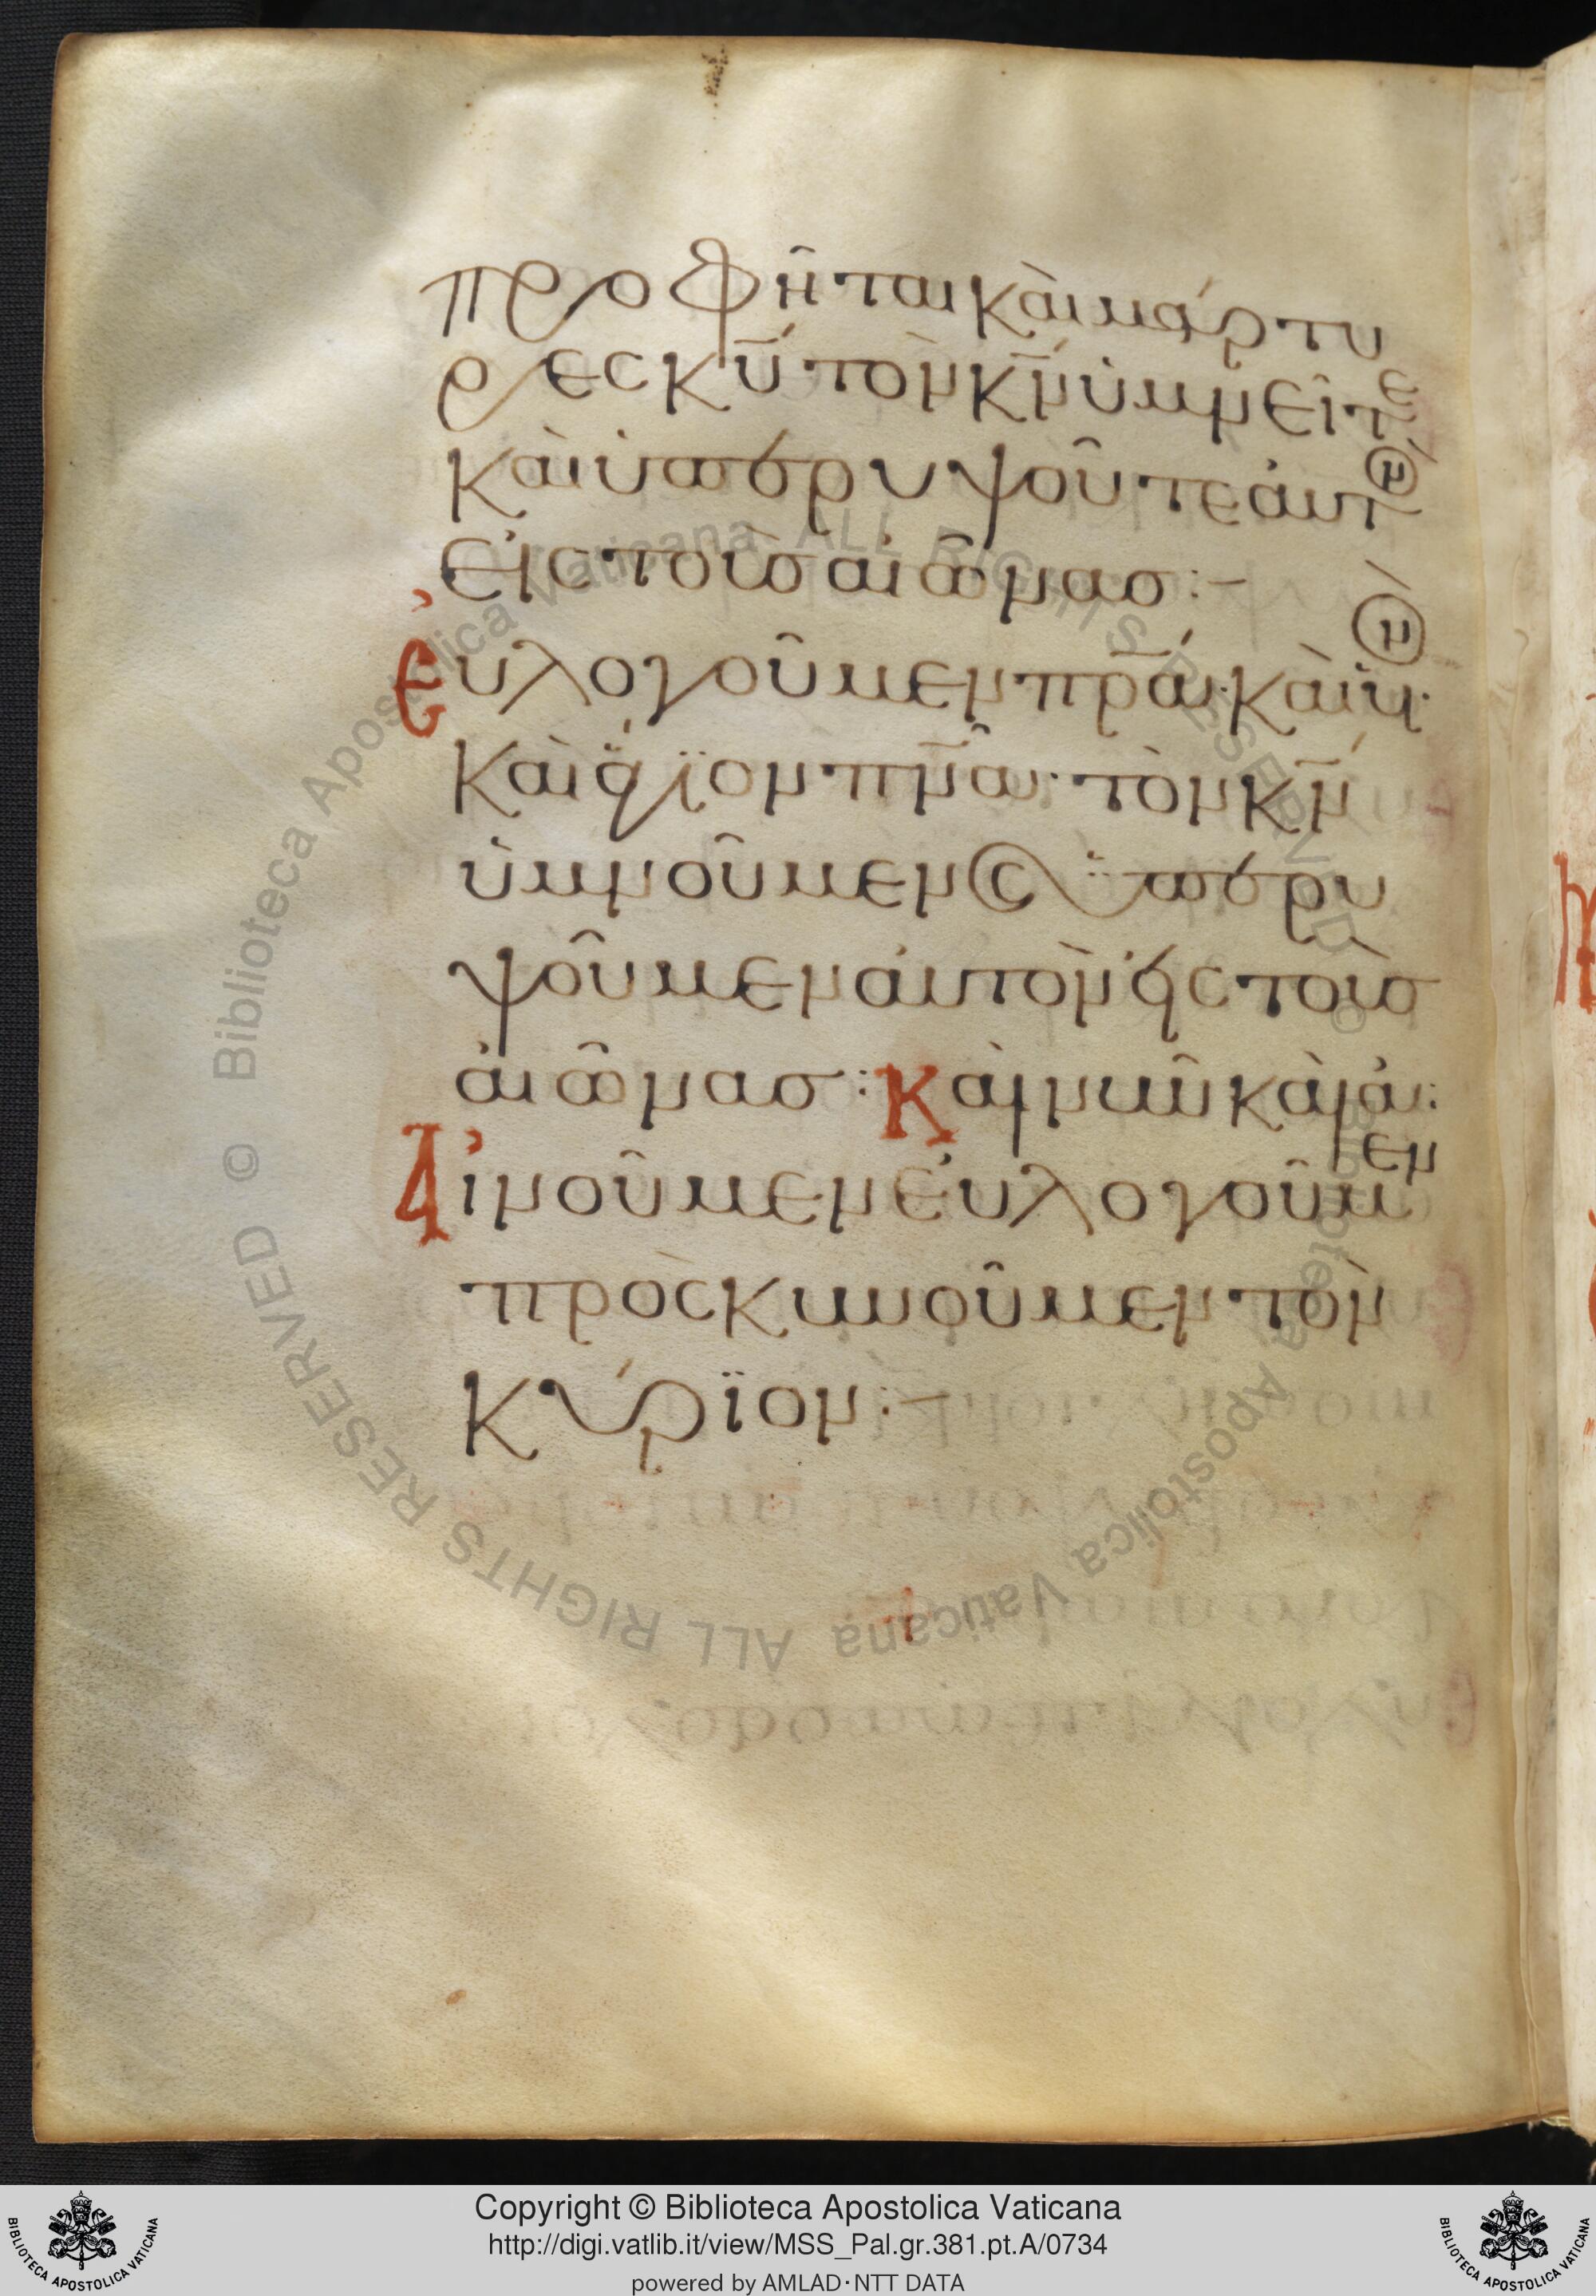 προφῆται καὶ μάρτυ
ρες κ̅υ̅ τὸν κ̅ν̅ ὑμνεῖτε
καὶ ὑπερυψοῦτε αὐτὸν
εἰς τοὺς αἰῶνας :-
εὐλογοῦμεν π̅ρ̅α̅ καὶ υ̅ν̅
καὶ ἅγϊον π̅ν̅α̅· τὸν κ̅ν̅
ὑμνοῦμεν (καὶ) ὑπερυ
ψοῦμεν αὐτὸν εἰς τοὺς
αἰῶνας : Καὶ νῦν καὶ ἀεὶ:
Αἰνοῦμεν εὐλογοῦμεν
προσκυνοῦμεν τὸν
κύρϊον :-
Biblioteca Apostolica Vaticana ALL RIGHTS RESERVED ©
Biblioteca Apostolica Vaticana ALL RIGHTS RESERVED ©
BIBLIOTECA APOSTOLICA VATICANA
Copyright © Biblioteca Apostolica Vaticana
http://digi.vatlib.it/view/MSS_Pal.gr.381.pt.A/0734
powered by AMLAD·NTT DATA
BIBLIOTECA APOSTOLICA VATICANA